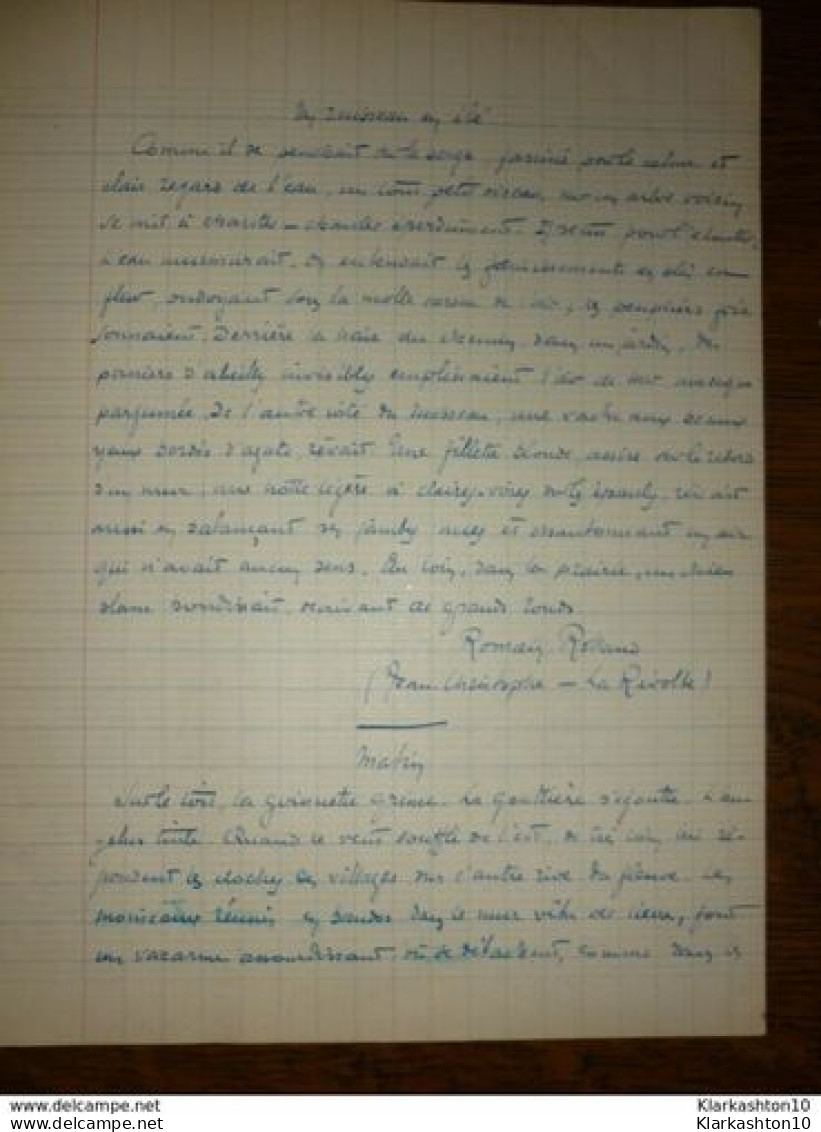 Un ruisseau en été
Comme il se penchait sur la berge, fasciné par le calme et
clair regard de l'eau, un tout petit oiseau, sur un arbre voisin
se mit à chanter – chanter éperdument. Il pour l'écouter,
l'eau murmurait. On entendait les frémissements des blés en
fleur, ondoyant sous la molle caresse de l'air; les peupliers fris
sonnaient. Derrière la haie du chemin, dans un jardin, des
paniers d'abeilles invisibles emplissaient l'air de leur musique
parfumée. De l'autre côté du ruisseau, une vache aux beaux
yeux bordés d'agate, rêvait. Une fillette blonde, assise sur le rebord
d'un mur, une hotte légère à claires-voies sur les épaules, rêvait
aussi en balançant ses jambes nues et chantonnant un air
qui n'avait aucun sens. Au loin, dans la prairie, un chien
blanc bondissait, décrivant de grands ronds.
Romain Rolland
(Jean Christophe – La Révolte)
Matin
Sur le toit, la girouette grince. La gouttière s'égoutte. L'an-
gélus tinte. Quand le vent souffle de l'est, de très loin, lui ré-
pondent les cloches des villages sur l'autre rive du fleuve. Les
moineaux réunis en bandes dans le mur vêtu de lierre, font
un vacarme assourdissant, où se détachent, comme dans les
www.delcampe.net
Klarkashton10
www.delcampe.net
Klarkashton10